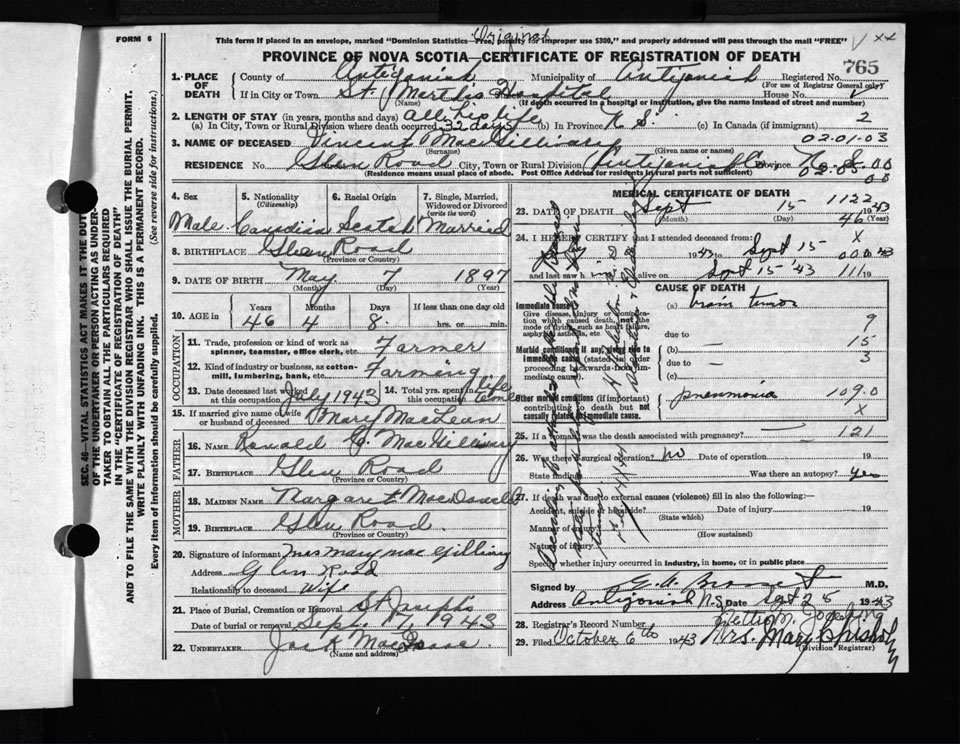 FORM 6
This form if placed in an envelope, marked "Dominion Statistics—Free, penalty for improper use $300," and properly addressed will pass through the mail "FREE"
Original
V xx
PROVINCE OF NOVA SCOTIA—CERTIFICATE OF REGISTRATION OF DEATH
765
1. PLACE OF DEATH
County of Antigonish Municipality of Antigonish Registered No.
(For use of Registrar General only)
If in City or Town St. Martha's Hospital House No.
(Name) (If death occurred in a hospital or institution, give the name instead of street and number)
2. LENGTH OF STAY (in years, months and days) all his life
(a) In City, Town or Rural Division where death occurred 32 days (b) In Province N. S. (c) In Canada (if immigrant) 2
02-01-03
3. NAME OF DECEASED Vincent MacGillivary
(Surname) (Given name or names)
RESIDENCE No. Glen Road City, Town or Rural Division Antigonish Co. Province N. S. 00
(Residence means usual place of abode. Post Office Address for residents in rural parts not sufficient) 02-05-00
4. Sex 5. Nationality (Citizenship) 6. Racial Origin 7. Single, Married, Widowed or Divorced (write the word)
Male Canadian Scotch Married
8. BIRTHPLACE Glen Road
(Province or Country)
9. DATE OF BIRTH May 7 1897
(Month) (Day) (Year)
10. AGE in Years Months Days If less than one day old
46 4 8 hrs. or min.
OCCUPATION
11. Trade, profession or kind of work as spinner, teamster, office clerk, etc. Farmer
12. Kind of industry or business, as cotton-mill, lumbering, bank, etc. Farming
13. Date deceased last worked at this occupation July 1943 14. Total yrs. spent in this occupation life time
15. If married give name of wife or husband of deceased Mary MacLean
FATHER
16. NAME Ranald G. MacGillivary
17. BIRTHPLACE Glen Road
(Province or Country)
MOTHER
18. MAIDEN NAME Margaret MacDonald
19. BIRTHPLACE Glen Road.
(Province or Country)
20. Signature of informant Mrs Mary Mac Gillivary
Address Glen Road
Relationship to deceased wife
21. Place of Burial, Cremation or Removal St Joseph's
Date of burial or removal Sept. 17, 1943
22. UNDERTAKER Jack MacIsaac
(Name and address)
MEDICAL CERTIFICATE OF DEATH
1122
23. DATE OF DEATH Sept 15 1943
(Month) (Day) 46 (Year)
24. I HEREBY CERTIFY that I attended deceased from: X
1943 to Sept 15 000 43
and last saw h im alive on Sept 15 '43 111 19
CAUSE OF DEATH
Immediate cause (a) brain tumor
Give disease, injury or complication which caused death, not the mode of dying, such as heart failure, asphyxia, asthenia, etc.
9
due to
15
Morbid conditions if any, giving rise to immediate cause (stated in order proceeding backwards from immediate cause).
(b) —
due to —
3
(c)
Other morbid conditions (if important) contributing to death but not causally related to immediate cause.
pneumonia 109.0
X
25. If a woman was the death associated with pregnancy? — 121
26. Was there a surgical operation? no Date of operation 19
State findings Was there an autopsy? yes
27. If death was due to external causes (violence) fill in also the following:—
Accident, suicide or homicide? Date of injury 19
(State which)
Manner of injury
(How sustained)
Nature of injury
Specify whether injury occurred in industry, in home, or in public place
Signed by M.D.
Address Antigonish N.S. Date Sept 25 1943
28. Registrar's Record Number
29. Filed October 6th 1943 Mrs. Mary Chisholm
(Division Registrar)
SEC. 46—VITAL STATISTICS ACT MAKES IT THE DUTY
OF THE UNDERTAKER OR PERSON ACTING AS UNDER-
TAKER TO OBTAIN ALL THE PARTICULARS REQUIRED
IN THE "CERTIFICATE OF REGISTRATION OF DEATH"
AND TO FILE THE SAME WITH THE DIVISION REGISTRAR WHO SHALL ISSUE THE BURIAL PERMIT.
WRITE PLAINLY WITH UNFADING INK. THIS IS A PERMANENT RECORD.
Every item of information should be carefully supplied. (See reverse side for instructions.)